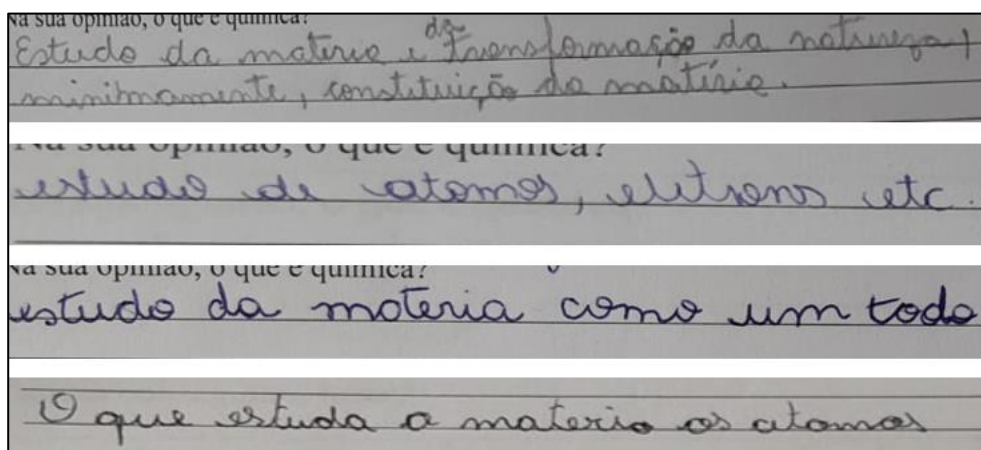 Na sua opinião, o que é química?
Estudo da materia e da transformação da natureza,
minimamente, constituição da matéria.
Na sua opinião, o que é química?
estudo de atomos, eletrons etc.
Na sua opinião, o que é química?
estudo da materia como um todo
O que estuda a materia os atomos